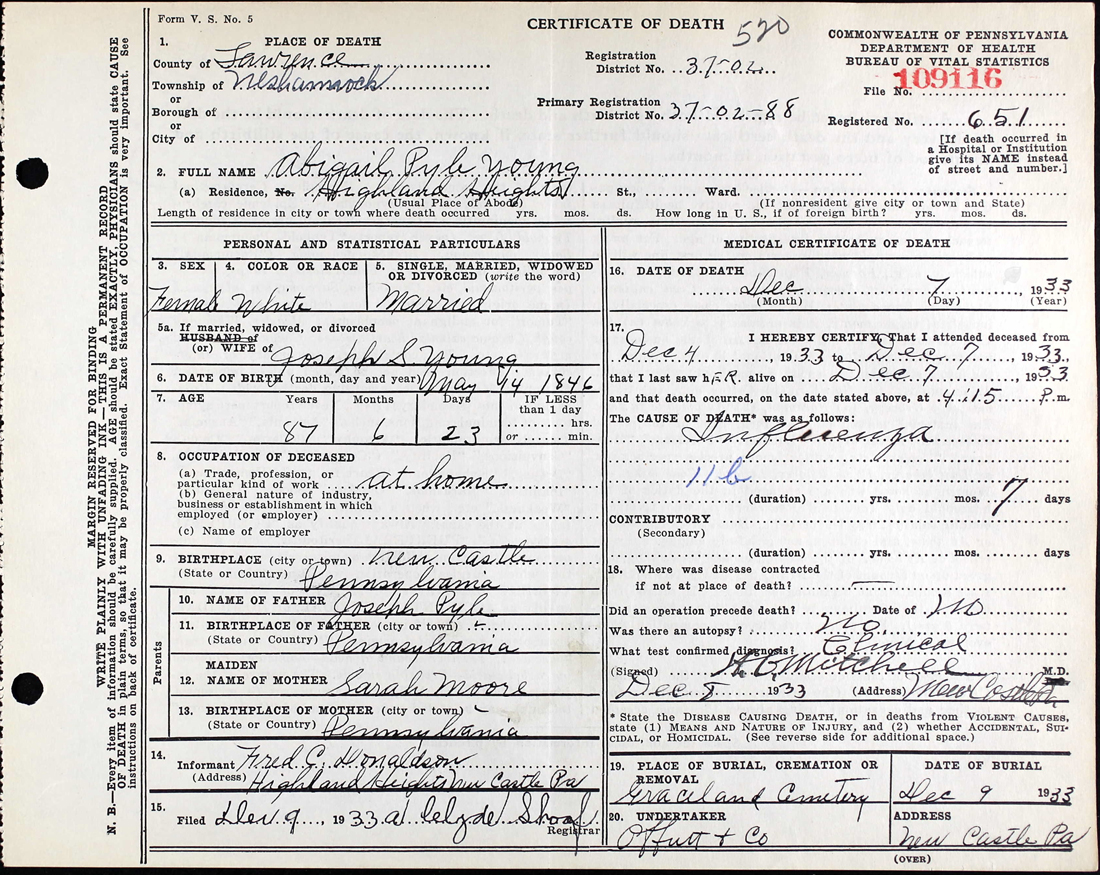 Form V. S. No. 5
CERTIFICATE OF DEATH
520
COMMONWEALTH OF PENNSYLVANIA
DEPARTMENT OF HEALTH
BUREAU OF VITAL STATISTICS
1. PLACE OF DEATH
County of Lawrence
Township of Neshannock
or
Borough of
or
City of
Registration
District No. 37-02
Primary Registration
District No. 37-02-88
File No. 109116
Registered No. 651
[If death occurred in
a Hospital or Institution
give its NAME instead
of street and number.]
2. FULL NAME Abigail Pyle Young
(a) Residence, No. Highland Heights St., Ward.
(Usual Place of Abode) (If nonresident give city or town and State)
Length of residence in city or town where death occurred yrs. mos. ds. How long in U. S., if of foreign birth? yrs. mos. ds.
PERSONAL AND STATISTICAL PARTICULARS
3. SEX 4. COLOR OR RACE 5. SINGLE, MARRIED, WIDOWED
OR DIVORCED (write the word)
Female White Married
5a. If married, widowed, or divorced
HUSBAND of
(or) WIFE of Joseph S. Young
6. DATE OF BIRTH (month, day and year) May 14 1846
7. AGE Years Months Days IF LESS
than 1 day
87 6 23 hrs.
or min.
8. OCCUPATION OF DECEASED
(a) Trade, profession, or
particular kind of work at home
(b) General nature of industry,
business or establishment in which
employed (or employer)
(c) Name of employer
9. BIRTHPLACE (city or town) New Castle
(State or Country) Pennsylvania
Parents
10. NAME OF FATHER Joseph Pyle
11. BIRTHPLACE OF FATHER (city or town)
(State or Country) Pennsylvania
MAIDEN
12. NAME OF MOTHER Sarah Moore
13. BIRTHPLACE OF MOTHER (city or town)
(State or Country) Pennsylvania
14. Informant Fred C. Donaldson
(Address) Highland Heights New Castle Pa
15. Filed Dec 9, 1933 a Clyde Shoaf
Registrar
MEDICAL CERTIFICATE OF DEATH
16. DATE OF DEATH
Dec 7, 1933
(Month) (Day) (Year)
17. I HEREBY CERTIFY, That I attended deceased from
Dec 4, 1933 to Dec 7, 1933,
that I last saw hER. alive on Dec 7, 1933
and that death occurred, on the date stated above, at 4:15 P.m.
The CAUSE OF DEATH* was as follows:
Influenza
11b
(duration) yrs. mos. 7 days
CONTRIBUTORY
(Secondary)
(duration) yrs. mos. days
18. Where was disease contracted
if not at place of death? —
Did an operation precede death? Date of No
Was there an autopsy? No
What test confirmed diagnosis? Clinical
(Signed) Mitchell M.D.
Dec 8, 1933 (Address) New Castle Pa
* State the DISEASE CAUSING DEATH, or in deaths from VIOLENT CAUSES,
state (1) MEANS AND NATURE OF INJURY, and (2) whether ACCIDENTAL, SUI-
CIDAL, or HOMICIDAL. (See reverse side for additional space.)
19. PLACE OF BURIAL, CREMATION OR
REMOVAL
Graceland Cemetery
DATE OF BURIAL
Dec 9 1933
20. UNDERTAKER
Offutt + Co
ADDRESS
New Castle Pa
(OVER)
MARGIN RESERVED FOR BINDING
WRITE PLAINLY WITH UNFADING INK—THIS IS A PERMANENT RECORD
N. B.—Every item of information should be carefully supplied. AGE should be stated EXACTLY. PHYSICIANS should state CAUSE
OF DEATH in plain terms, so that it may be properly classified. Exact Statement of OCCUPATION is very important. See
instructions on back of certificate.